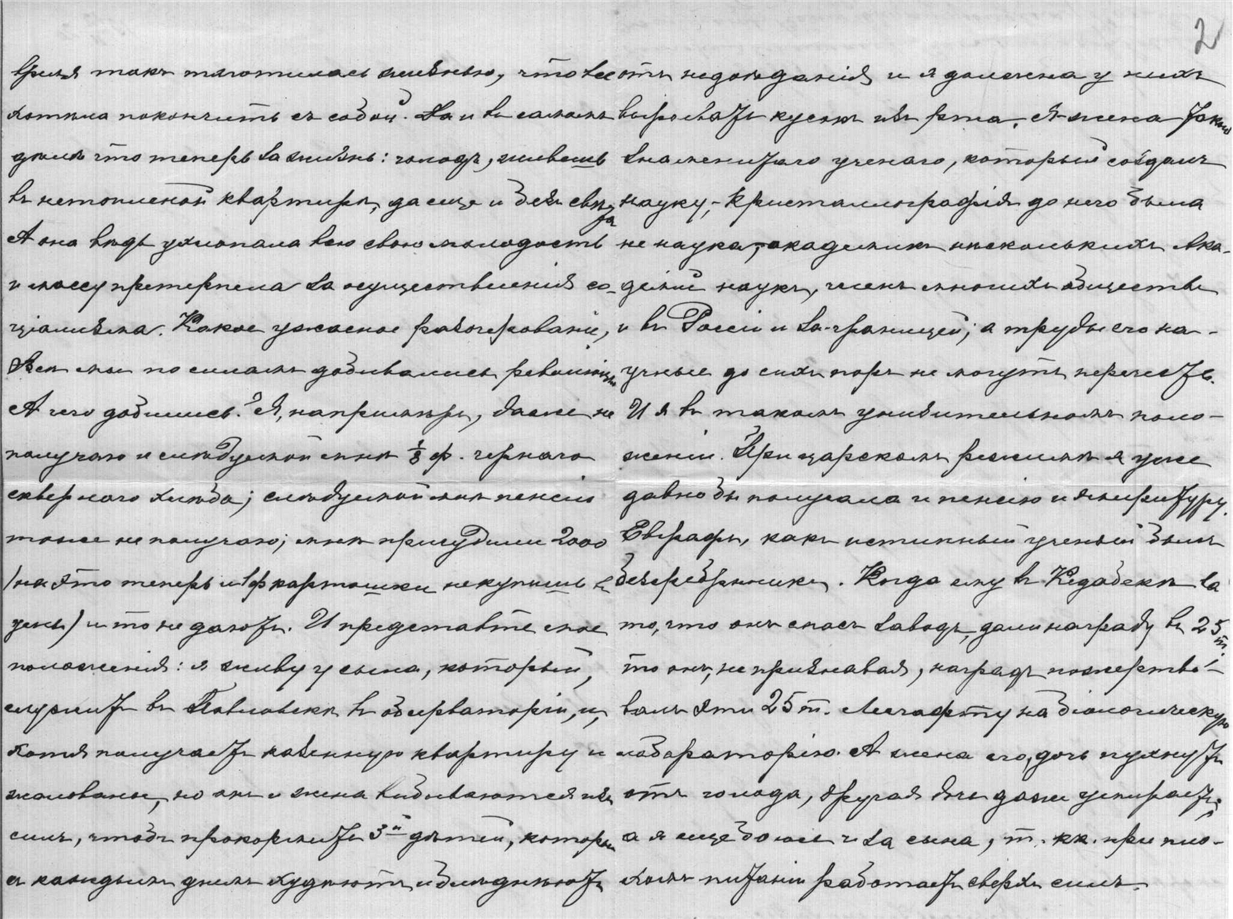 2
время такъ тяготилась жизнью, что все
хотѣла покончить съ собой. Да и въ самомъ
дѣлѣ что теперь за жизнь: голодъ, живешь
въ нетопленой квартирѣ, да еще и безъ свѣта
А она вѣдь ухлопала всю свою молодость
и массу претерпѣла за осуществленія со-
ціализма. Какое ужасное разочарованіе,
Всѣ мы по силамъ добивались революціи
А чего добились? Я, напримѣръ, даже не
получаю и слѣдуемой мнѣ 1/8 ф. чернаго
сквернаго хлѣба; слѣдуемой мнѣ пенсіи
тоже не получаю; мнѣ присудили 2000
(на это теперь и 1 ф картошки не купишь въ
день) и то не даютъ. И представте мое
положенія: я живу у сына, который,
служитъ въ Павловскѣ въ обсерваторіи, и,
хотя получаетъ казенную квартиру и
жалованье, но онъ и жена выбиваются изъ
силъ, чтобъ прокормить 3хъ дѣтей, которые
съ каждымъ днемъ худѣютъ и блѣднѣютъ
отъ недоѣданія и я должна у нихъ
вырывать кусокъ изъ рта. Я жена
знаменитаго ученаго, который создалъ
науку,- Кристаллографія до него была
не наука, академикъ нѣсколькихъ Ака-
демій наукъ, членъ многихъ обществъ
и въ Россіи и за-границей; а труды его на-
учные до сихъ поръ не могутъ перечесть.
И я въ такомъ унизительномъ поло-
женіи. При царскомъ режимѣ я уже
давно бы получала и пенсію и эмеритуру.
Евграфъ, какъ истинный ученый былъ
безсребренникъ. Когда ему въ Кедабекѣ за
то, что онъ спасъ заводъ, дали награду въ 25 т.
то онъ, не признавая, наградъ пожертво-
валъ эти 25 т. Лесгафту на біологическую
лабараторію. А жена его, дочь пухнутъ
отъ голода, другая дочь даже умираетъ,
а я еще боюсь и за сына, т. кк. при пло-
хомъ питаніи работаетъ сверхъ силъ.